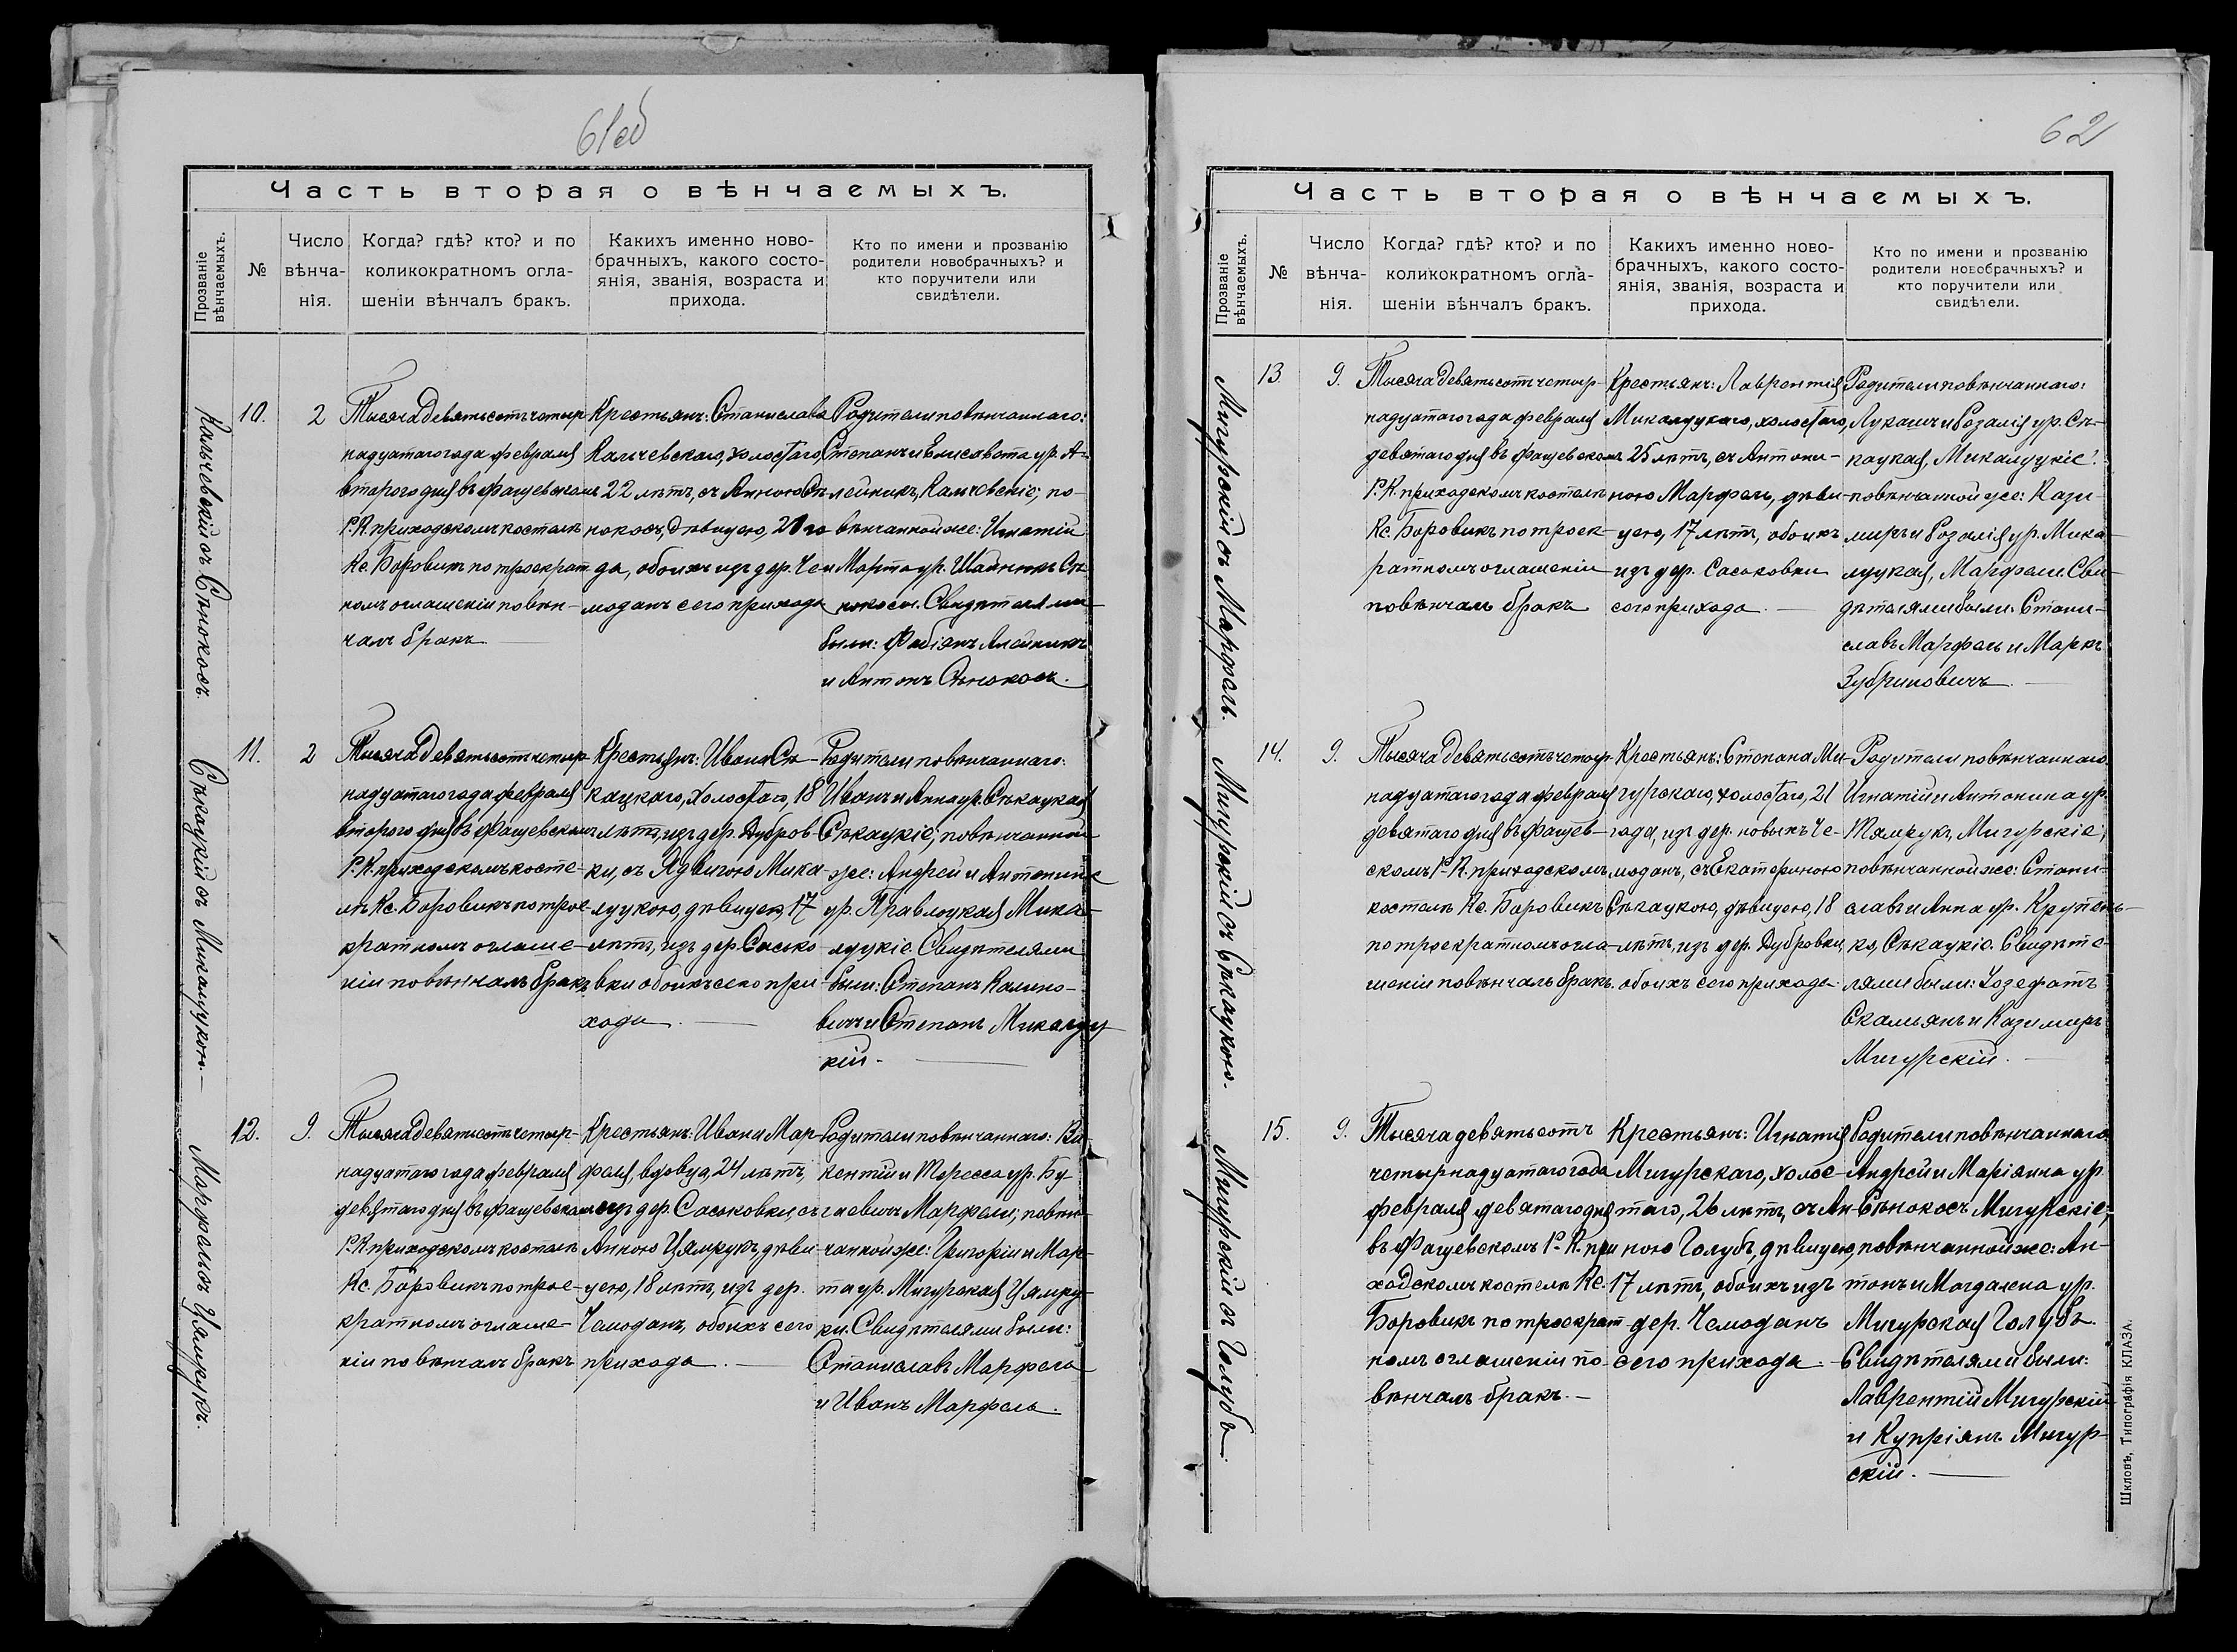 61об
Часть вторая о вѣнчаемыхъ.
Прозваніе вѣнчаемыхъ.
№
Число вѣнча-нія.
Когда? гдѣ? кто? и по
коликократномъ огла-
шеніи вѣнчалъ бракъ.
Какихъ именно ново-
брачныхъ, какого состо-
янія, званія, возраста и
прихода.
Кто по имени и прозванію
родители новобрачныхъ? и
кто поручители или
свидѣтели.
Кальчевскій съ Сѣнокосъ.
10.
2
Тысяча девятьсотъ четыр
надцатаго года февраля
второго дня въ Фащевскомъ
Р. К. приходскомъ костелѣ
Кс. Боровикъ по троекрат
номъ оглашеніи повѣн-
чалъ бракъ
Крестьянъ: Станислава
Кальчевскаго, холостаго
22 лѣтъ, съ Анною Сѣ
нокосъ, дѣвицею, 21 го
да, обоихъ изъ дер. Че
моданъ сего прихода
Родители повѣнчаннаго:
Степанъ и Елисавета ур. А-
лейникъ, Кальчевскіе; по-
вѣнчанной же: Игнатій
и Марта ур. Шаннихъ Сѣ-
нокосы. Свидѣтелями
были: Фабіянъ Алейникъ
и Антонъ Сѣнокосъ.
Сѣкацкій съ Микалуцкою.—
11.
2
Тысяча девятьсотъ четыр
надцатаго года февраля
второго дня въ Фащевскомъ
Р. К. приходскомъ косте-
лѣ Кс. Боровикъ по трое-
кратномъ оглаше-
ніи повѣнчалъ бракъ
Крестьянъ: Ивана Сѣ-
кацкаго, холостаго, 18
лѣтъ, изъ дер. Дубров-
ки, съ Ядвигою Мика-
луцкою, дѣвицею, 17
лѣтъ, изъ дер. Сасько
вки обоихъ сего при
хода.—
Родители повѣнчаннаго:
Иванъ и Анна ур. Сѣкацкая
Сѣкацкіе; повѣнчанной
же: Андрей и Антонина
ур. Правлоцкая Мика-
луцкіе. Свидѣтелями
были: Степанъ Калино-
вичъ и Степанъ Микалуц
кій.—
Марфель съ Цямрукъ.
12.
9.
Тысяча девятьсотъ четыр-
надцатаго года февраля
девятаго дня въ Фащевскомъ
Р. К. приходскомъ костелѣ
Кс. Боровикъ по трое-
кратномъ оглаше-
ніи повѣнчалъ бракъ
Крестьянъ: Ивана Мар
феля, вдовца, 24 лѣтъ,
изъ дер. Саськовки, съ
Анною Цямрукъ, дѣви
цею, 18 лѣтъ, изъ дер.
Чемоданъ, обоихъ сего
прихода.—
Родители повѣнчаннаго: Ви-
кентій и Тересса ур. Бу
гаевичъ Марфели; повѣн-
чанной же: Григорій и Мар-
та ур. Мигурская Цямру-
ки. Свидѣтелями были:
Станиславъ Марфель
и Иванъ Марфель.
62
Часть вторая о вѣнчаемыхъ.
Прозваніе вѣнчаемыхъ.
№
Число вѣнча-нія.
Когда? гдѣ? кто? и по
коликократномъ огла-
шеніи вѣнчалъ бракъ.
Какихъ именно ново-
брачныхъ, какого состо-
янія, званія, возраста и
прихода.
Кто по имени и прозванію
родители новобрачныхъ? и
кто поручители или
свидѣтели.
Мигурскій съ Марфель.
13
9.
Тысяча девятьсотъ четыр-
надцатаго года февраля
девятаго дня въ Фащевскомъ
Р. К. приходскомъ костелѣ
Кс. Боровикъ по троек-
ратномъ оглашеніи
повѣнчалъ бракъ
Крестьянъ: Лаврентія
Микалуцкаго, холостаго,
25 лѣтъ, съ Антони-
ною Марфель, дѣви-
цею, 17 лѣтъ, обоихъ
изъ дер. Саськовки
сего прихода.—
Родители повѣнчаннаго:
Лукашъ и Розалія ур. Сѣ-
кацкая, Микалуцкіе;
повѣнчанной же: Кази-
миръ и Розалія ур. Мика-
луцкая, Марфели. Сви-
дѣтелями были: Стани-
славъ Марфель и Маркъ
Зубриновичъ.—
Мигурскій съ Сѣкацкою.
14.
9.
Тысяча девятьсотъ четыр-
надцатаго года февраля
девятаго дня въ Фащев-
скомъ Р. К. приходскомъ
костелѣ Кс. Боровикъ
по троекратномъ огла-
шеніи повѣнчалъ бракъ.
Крестьянъ: Степана Ми-
гурскаго, холостаго, 21
года, изъ дер. новыхъ Че-
моданъ, съ Екатериною
Сѣкацкою, дѣвицею, 18
лѣтъ, изъ дер. Дубровки,
обоихъ сего прихода.
Родители повѣнчаннаго
Игнатій и Антонина ур.
Тямрукъ, Мигурскіе;
повѣнчанной же: Стани-
славъ и Анна ур. Крупень-
ко, Сѣкацкіе. Свидѣте-
лями были: Іозефатъ
Скамьянъ и Казимиръ
Мигурскій.—
Мигурскій съ Голубъ
15.
9.
Тысяча девятьсотъ
четырнадцатаго года
февраля девятаго дня
въ Фащевскомъ Р. К. при
ходскомъ костелѣ Кс.
Боровикъ по троекрат-
номъ оглашеніи по-
вѣнчалъ бракъ.—
Крестьянъ: Игнатія
Мигурскаго, холос-
таго, 26 лѣтъ, съ Ан-
ною Голубъ, дѣвицею,
17 лѣтъ, обоихъ изъ
дер. Чемоданъ
сего прихода.—
Родители повѣнчаннаго
Андрей и Маріянна ур.
Сѣнокосъ Мигурскіе;
повѣнчанной же: Ан-
тонъ и Магдалена ур.
Мигурская Голубъ.
Свидѣтелями были:
Лаврентій Мигурскій
и Купріянъ Мигур-
скій.—
Шкловъ, Типографія КЛАЗА.